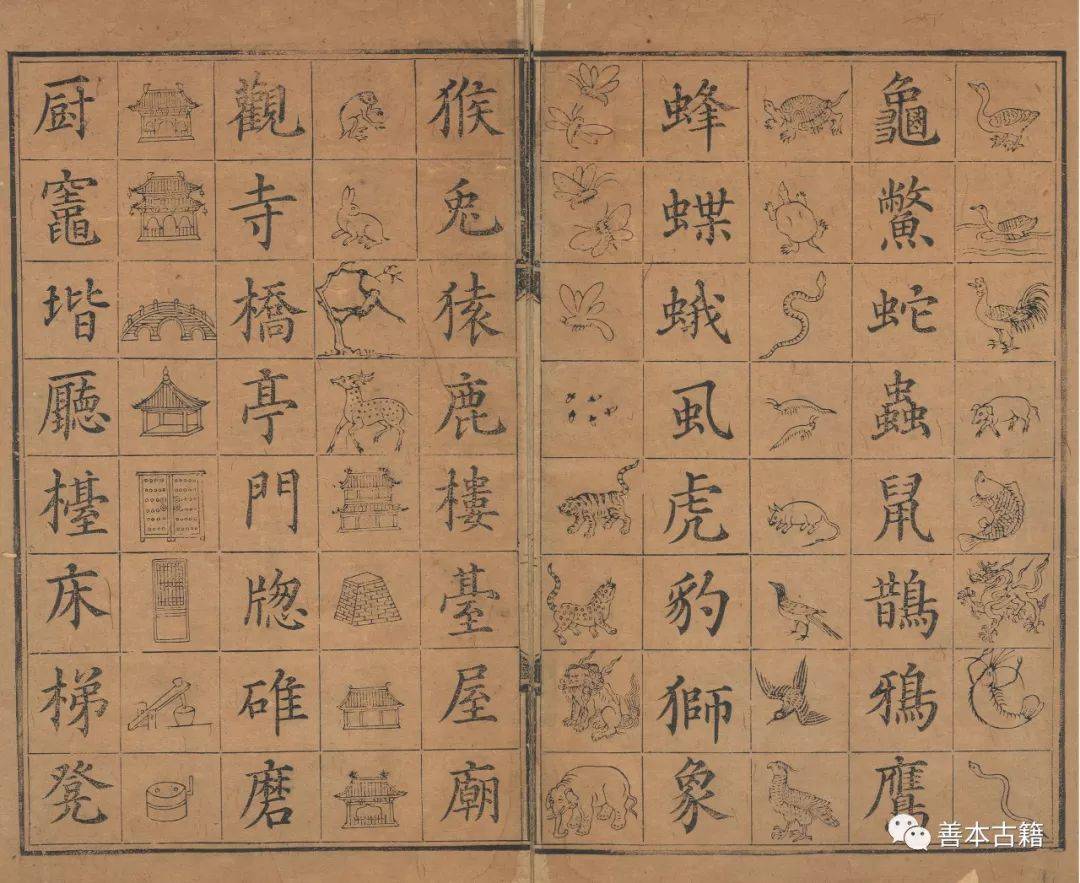 龜鱉蛇蟲鼠鵲鴉鷹
蜂蝶蛾虱虎豹獅象
猴兎猿鹿樓臺屋廟
觀寺橋亭門牕碓磨
厨竈堦廳檯床梯凳
善本古籍